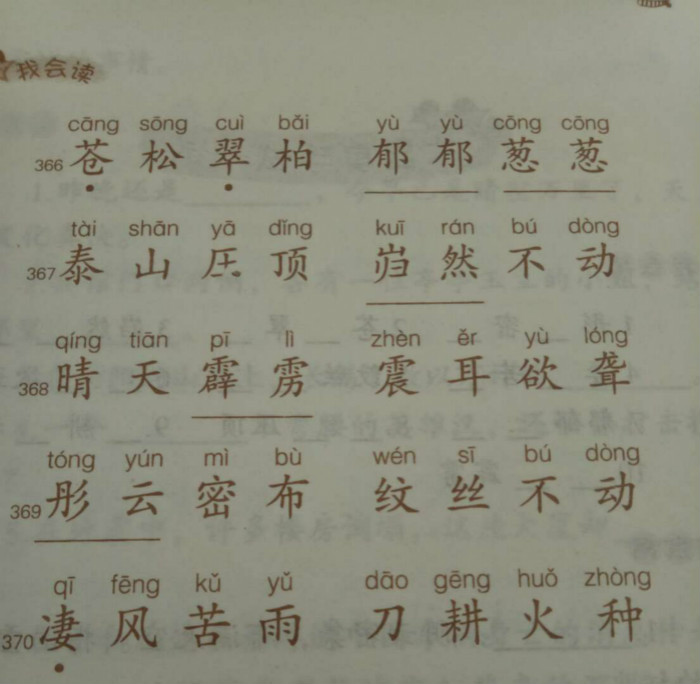 我会读
cāng sōng cuì bǎi yù yù cōng cōng
366 苍松翠柏 郁郁葱葱
tài shān yā dǐng kuī rán bú dòng
367 泰山压顶 岿然不动
qíng tiān pī lì zhèn ěr yù lóng
368 晴天霹雳 震耳欲聋
tóng yún mì bù wén sī bú dòng
369 彤云密布 纹丝不动
qī fēng kǔ yǔ dāo gēng huǒ zhòng
370 凄风苦雨 刀耕火种